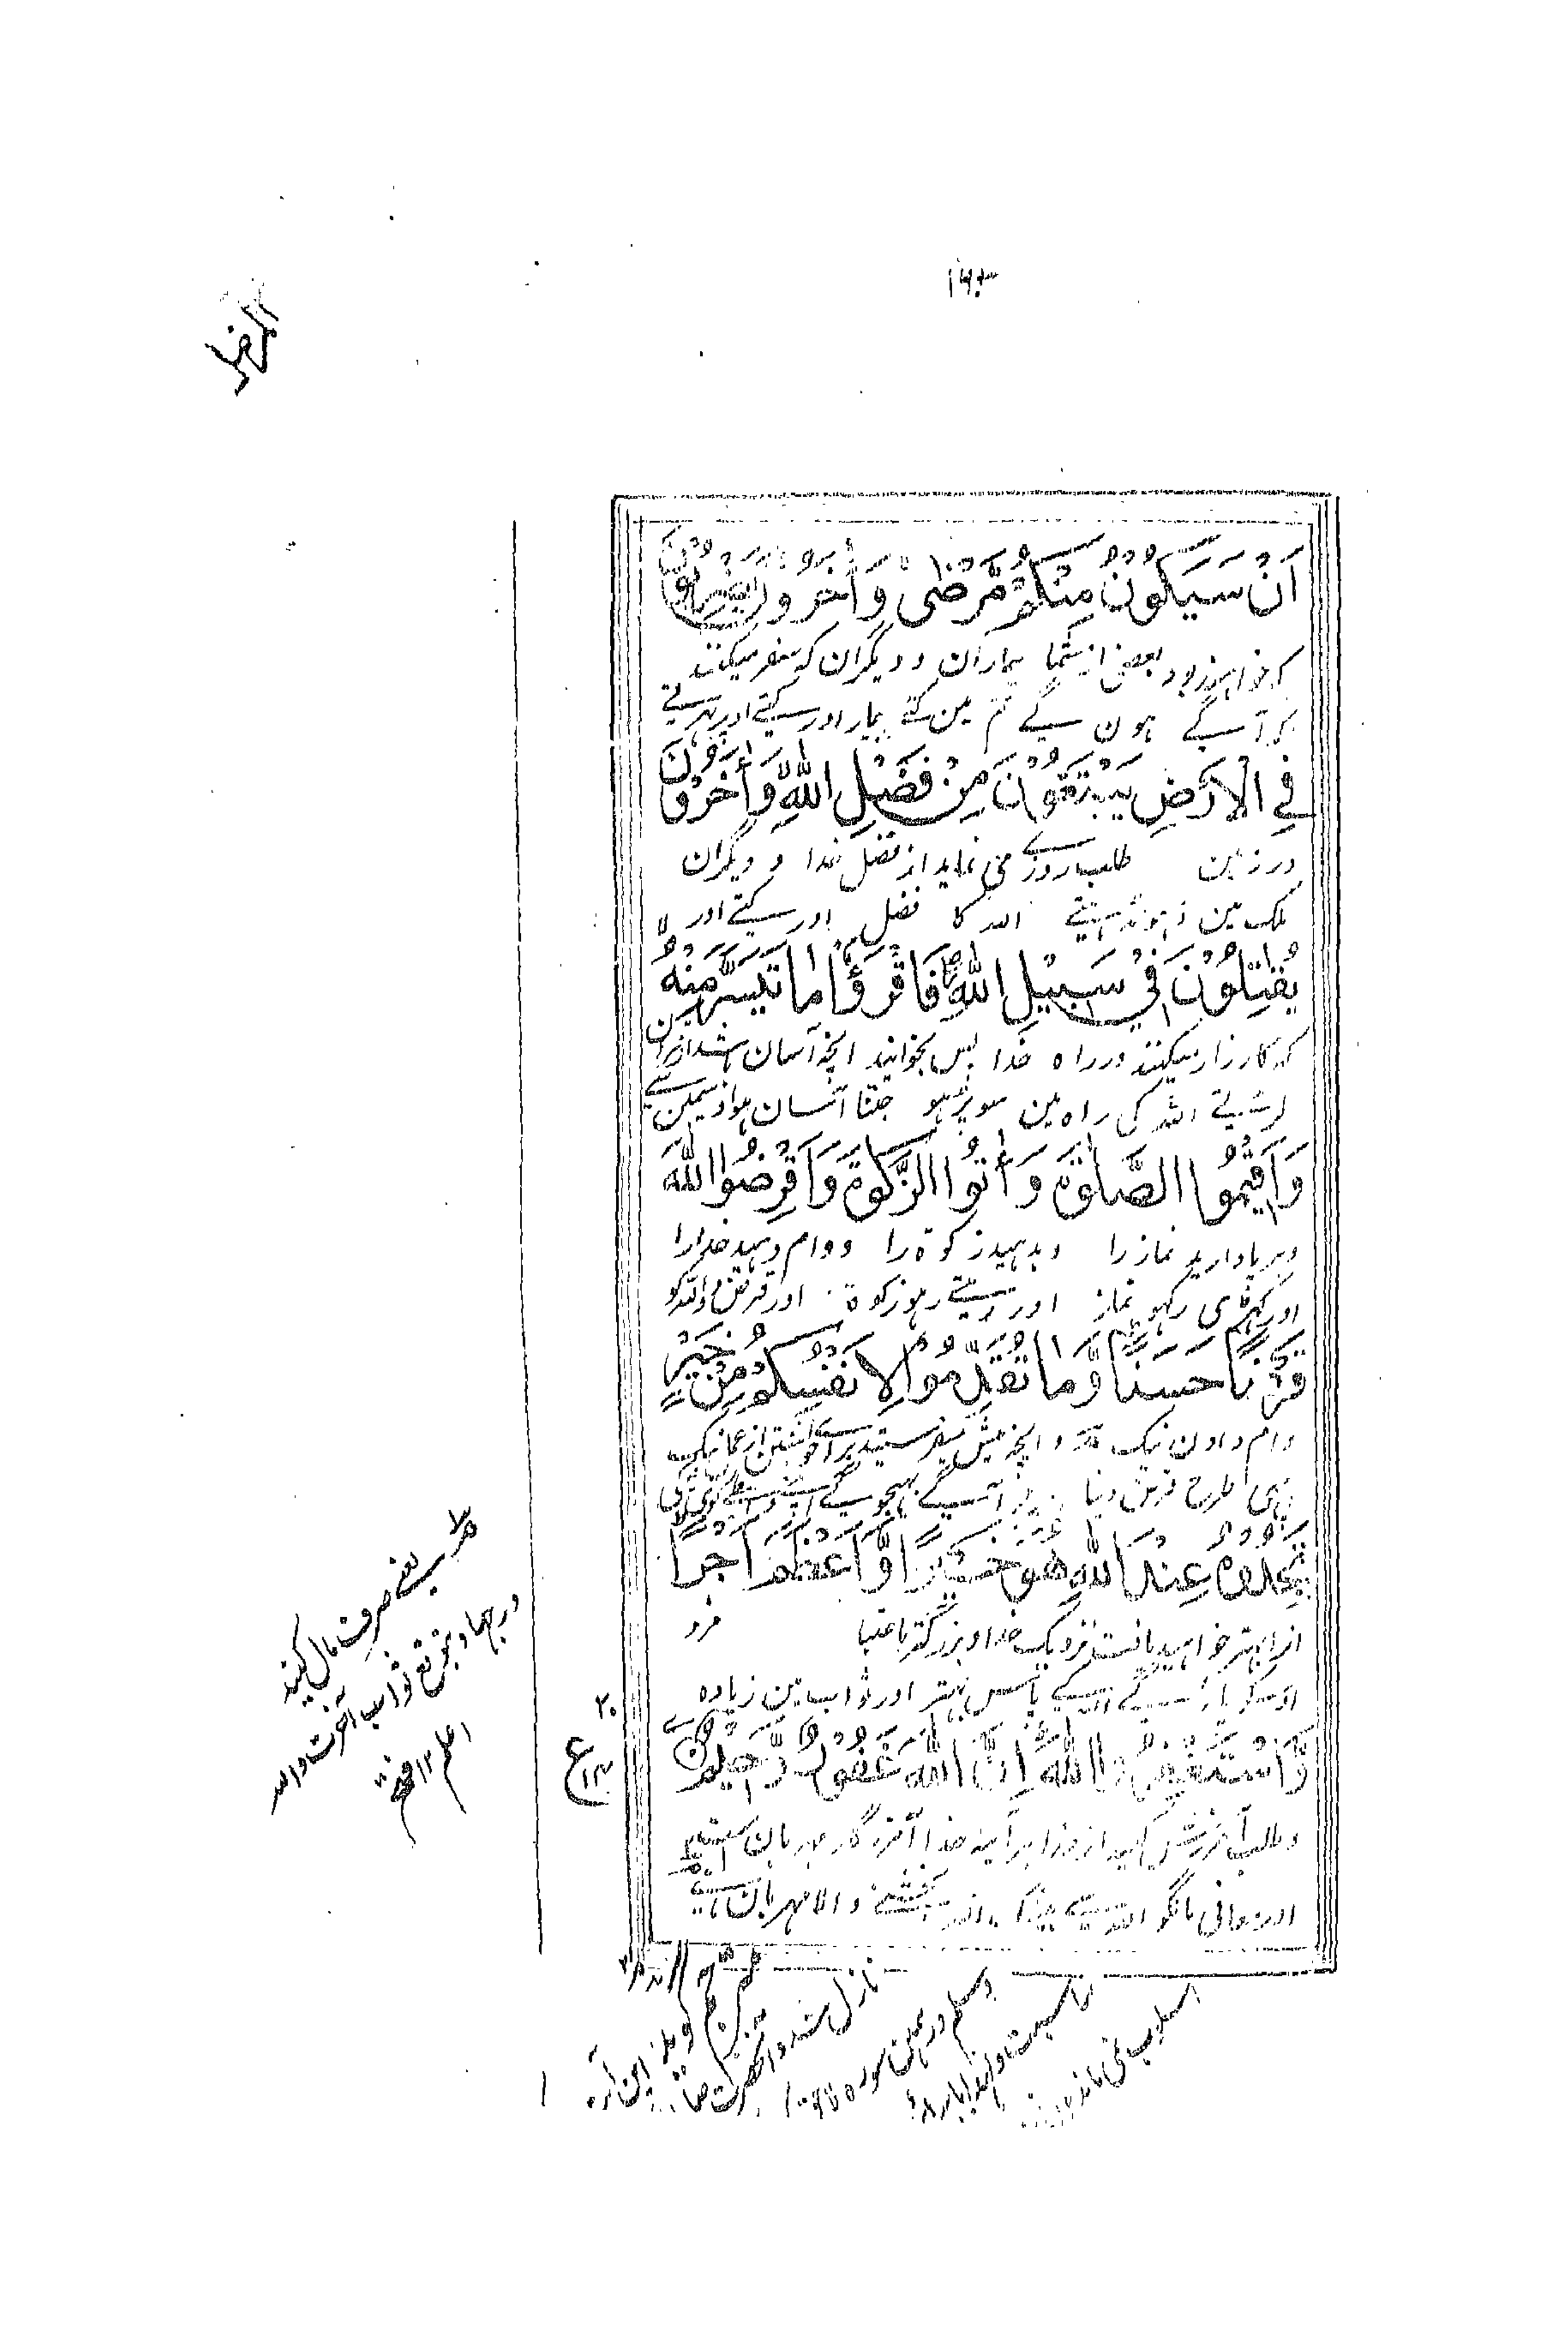 ۱۶۰۳
اَنْ سَيَكُوْنُ مِنْكُمْ مَّرْضٰى وَاٰخَرُوْنَ يَضْرِبُوْنَ
که خواهند بود بعضی از شما بیماران و دیگران که سفر میکنند
کہ آگے ہون گے تم مین کتے بیمار اور کتے اور پہرتے
فِي الْاَرْضِ يَبْتَغُوْنَ مِنْ فَضْلِ اللّٰهِ وَاٰخَرُوْنَ
در زمین طلب روزے می نمایند از فضل خدا و دیگران
ملک مین ڈہونڈہتے اللہ کا فضل اور کتے اور
يُقَاتِلُوْنَ فِيْ سَبِيْلِ اللّٰهِ فَاقْرَءُوْا مَا تَيَسَّرَ مِنْهُ
که کارزار میکنند در راه خدا پس بخوانید آنچه آسان باشد از قرآن
لڑتے اللہ کی راہ مین سو پڑہو جتنا آسان ہو اوسمین سے
وَاَقِيْمُوا الصَّلٰوةَ وَاٰتُوا الزَّكٰوةَ وَاَقْرِضُوا اللّٰهَ
و برپا دارید نماز را و بدہید زکوة را و وام دہید خدا را
اور کہڑی رکہو نماز اور دیتے رہو زکوة اور قرض دو اللہ کو
قَرْضًا حَسَنًا وَّمَا تُقَدِّمُوْا لِاَنْفُسِكُمْ مِّنْ خَيْرٍ
وام دادن نیک و آنچه پیش میفرستید برای خویشتن از عمل نیک
اچہی طرح قرض دینا آگے بہیجو گے اپنے واسطے کوئی نیکی
تَجِدُوْهُ عِنْدَ اللّٰهِ هُوَ خَيْرًا وَّاَعْظَمَ اَجْرًا
انرا بہتر خواہید یافت نزدیک خدا و بزرگتر باعتبار مزد
اوسکو پاؤ گے اللہ کے پاس بہتر اور ثواب مین زیادہ
وَاسْتَغْفِرُوا اللّٰهَ اِنَّ اللّٰهَ غَفُوْرٌ رَّحِيْمٌ
و طلب آمرزش کنید از خدا ہرآینہ خدا آمرزگار مہربان است
اور معافی مانگو اللہ سے بیشک اللہ بخشنے والا مہربان ہے
ع
یعنے صرف مال کنید
در جہاد بتوقع ثواب آخرت واللہ
اعلم ۱۲
مترجم گوید این آیہ
نازل شد و آنحضرت
وسلم در ہمین سورہ